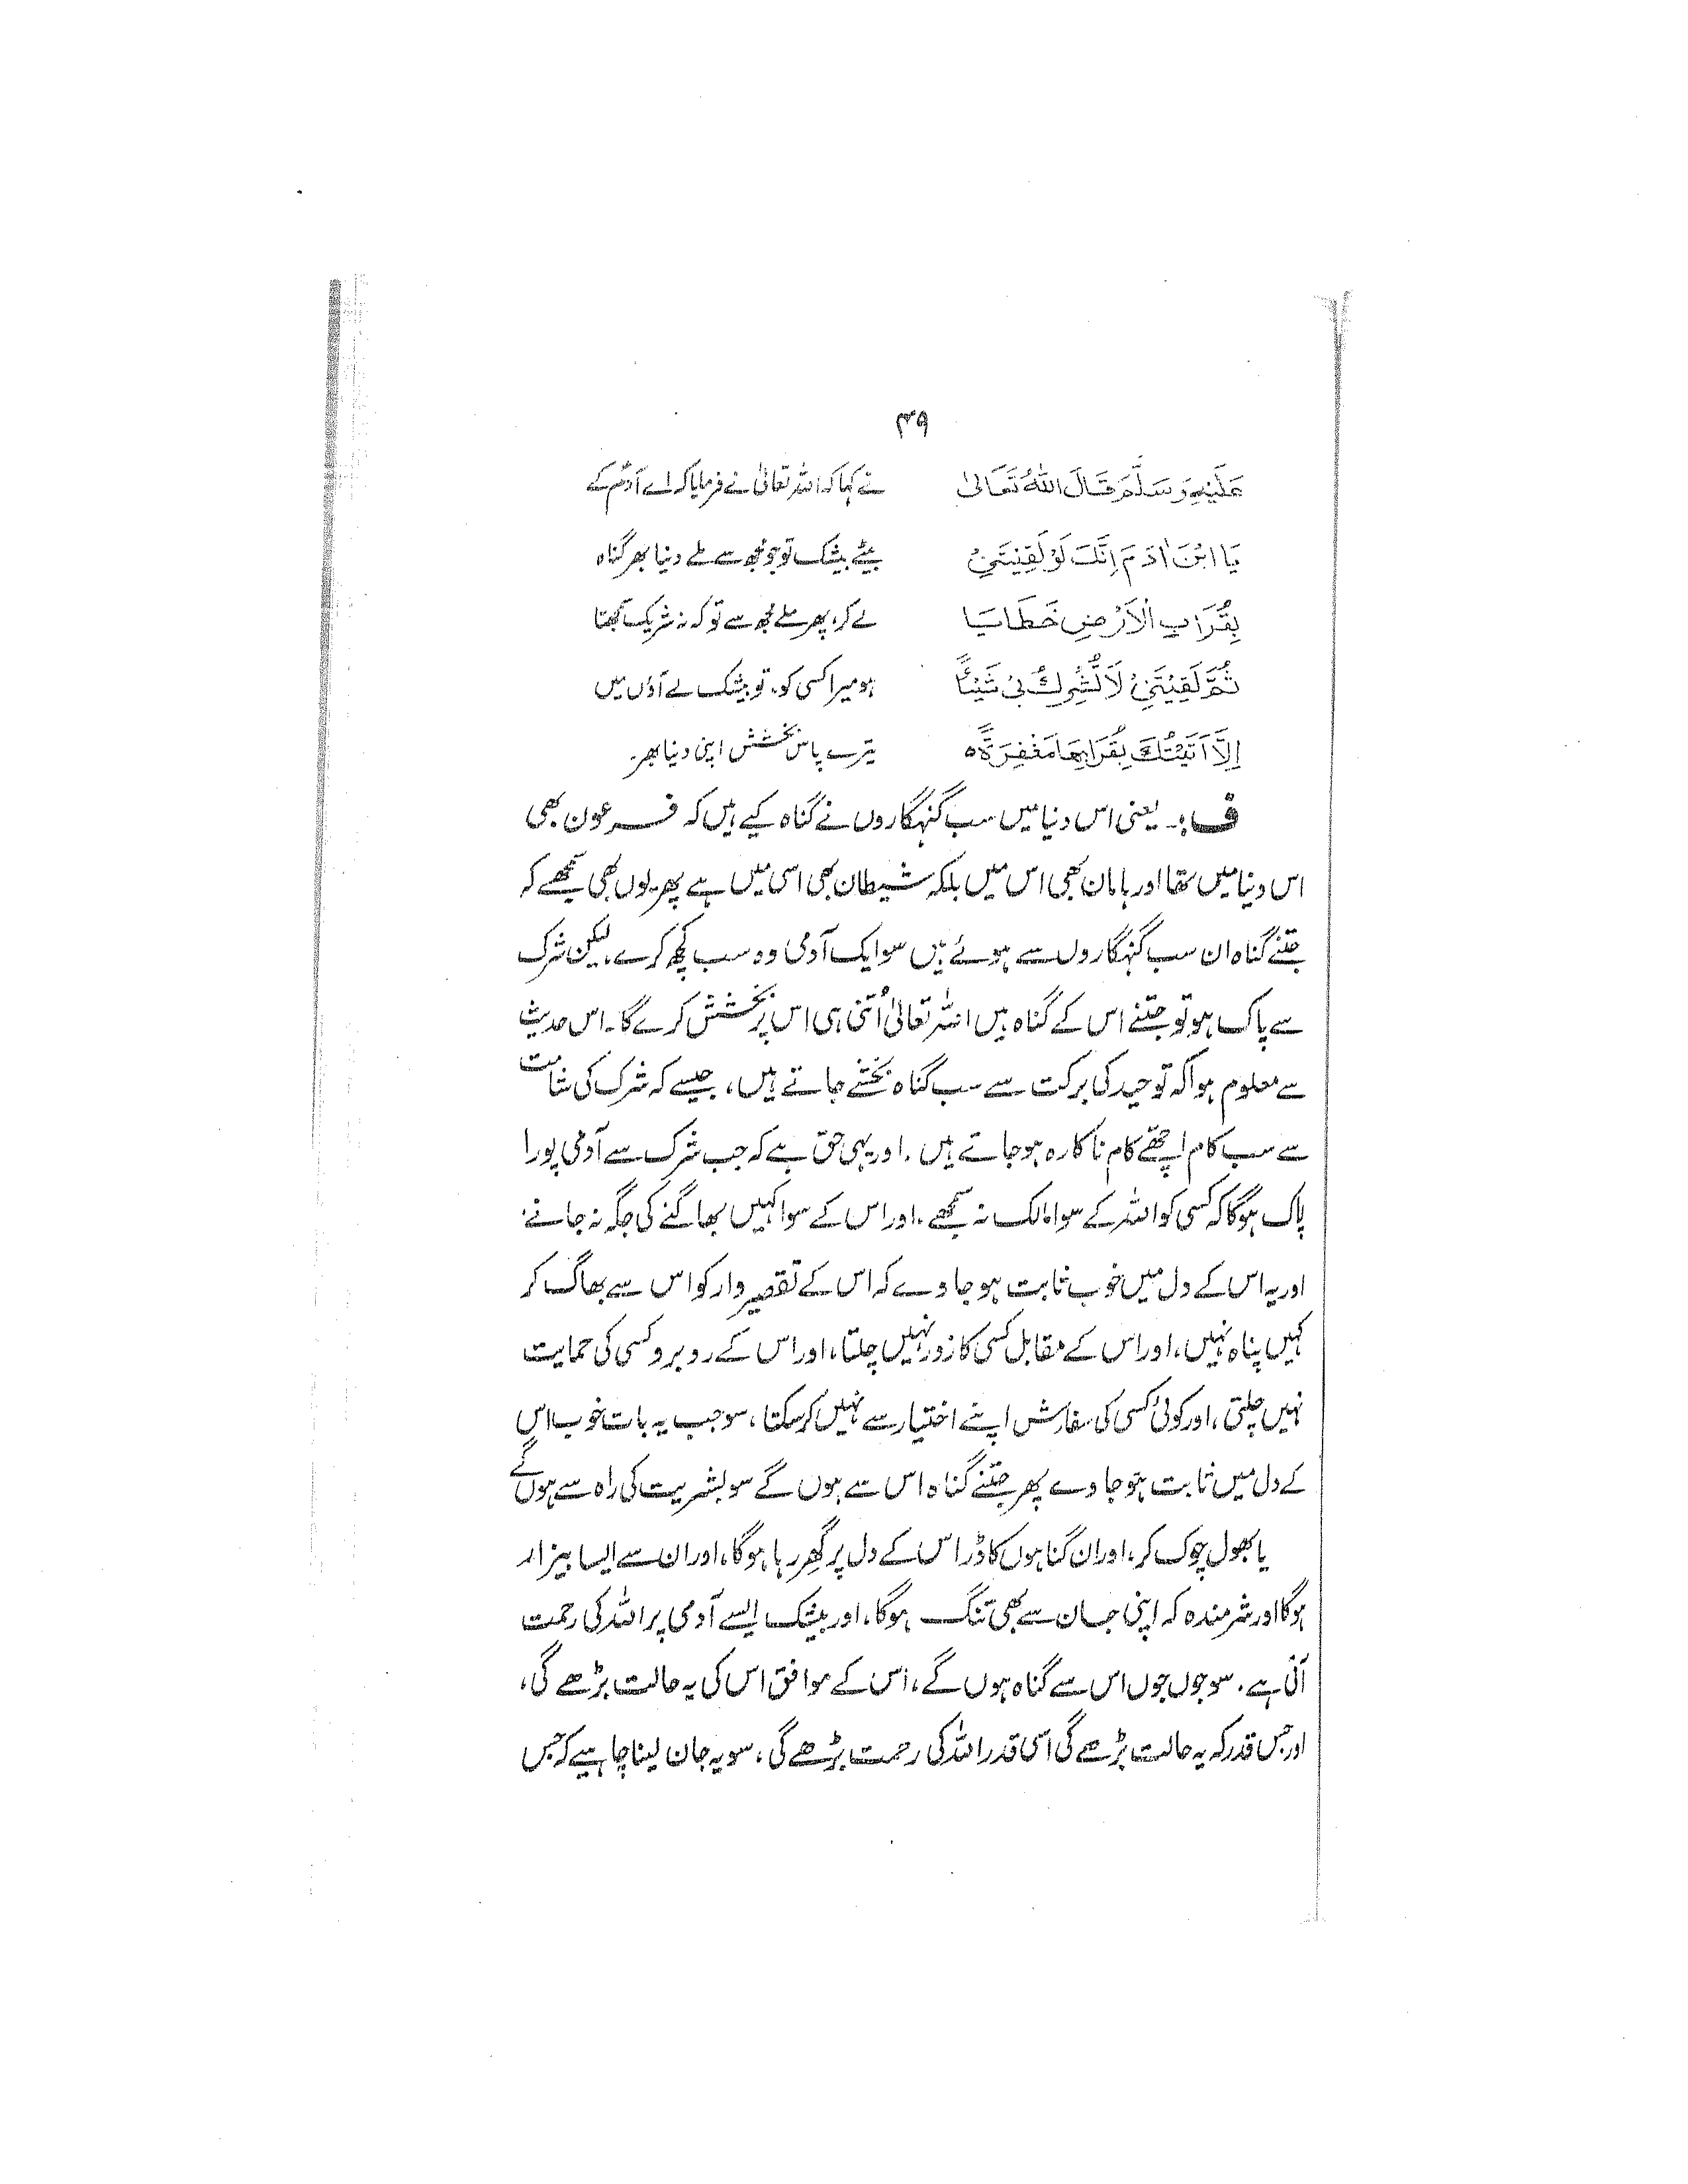 ۳۹
عَلَيْهِ وَسَلَّمَ قَالَ اللهُ تَعَالىٰ نے کہا کہ اللہ تعالیٰ نے فرمایا کہ اے آدم کے
يَا ابْنَ اٰدَمَ اِنَّكَ لَوْ لَقِيْتَنِىْ بیٹے بیشک تو جو مجھ سے ملے دنیا بھر گناہ
بِقُرَابِ الْاَرْضِ خَطَايَا لے کر، پھر ملے مجھ سے تو کہ نہ شریک سمجھتا
ثُمَّ لَقِيْتَنِىْ لَا تُشْرِكُ بِىْ شَيْئًا ہو میرا کسی کو۔ تو بیشک لے آؤں میں
اِلَّا اَتَيْتُكَ بِقُرَابِهَا مَغْفِرَةً ہ تیرے پاس بخشش اپنی دنیا بھر۔
ف :۔ یعنی اس دنیا میں سب گنہگاروں نے گناہ کیے ہیں کہ فرعون بھی
اس دنیا میں تھا اور ہامان بھی اس میں بلکہ شیطان بھی اسی میں ہے پھر یوں بھی سمجھے کہ
جتنے گناہ ان سب گنہگاروں سے ہوئے ہیں سو ایک آدمی وہ سب کچھ کرے، لیکن شرک
سے پاک ہو تو جتنے اس کے گناہ ہیں اللہ تعالیٰ اُتنی ہی اس پر بخشش کرے گا۔ اس حدیث
سے معلوم ہوا کہ توحید کی برکت سے سب گناہ بخشے جاتے ہیں، جیسے کہ شرک کی شامت
سے سب کام اچھے کام ناکارہ ہو جاتے ہیں۔ اور یہی حق ہے کہ جب شرک سے آدمی پورا
پاک ہوگا کہ کسی کو اللہ کے سوا مالک نہ سمجھے، اور اس کے سوا کہیں بھاگنے کی جگہ نہ جانے،
اور یہ اس کے دل میں خوب ثابت ہو جاوے کہ اس کے تقصیر وار کو اس سے بھاگ کر
کہیں پناہ نہیں، اور اس کے مقابل کسی کا زور نہیں چلتا، اور اس کے روبرو کسی کی حمایت
نہیں چلتی، اور کوئی کسی کی سفارش اپنے اختیار سے نہیں کر سکتا، سو جب یہ بات خوب اس
کے دل میں ثابت ہو جاوے پھر جتنے گناہ اس سے ہوں گے سو بشریت کی راہ سے ہوں گے
یا بھول چوک کر، اور ان گناہوں کا ڈر اس کے دل پر گھر رہا ہوگا، اور ان سے ایسا بیزار
ہوگا اور شرمندہ کہ اپنی جان سے بھی تنگ ہوگا، اور بیشک ایسے آدمی پر اللہ کی رحمت
آتی ہے۔ سو جوں جوں اس سے گناہ ہوں گے، اس کے موافق اس کی یہ حالت بڑھے گی،
اور جس قدر کہ یہ حالت بڑھے گی اسی قدر اللہ کی رحمت بڑھے گی، سو یہ جان لینا چاہیے کہ جس